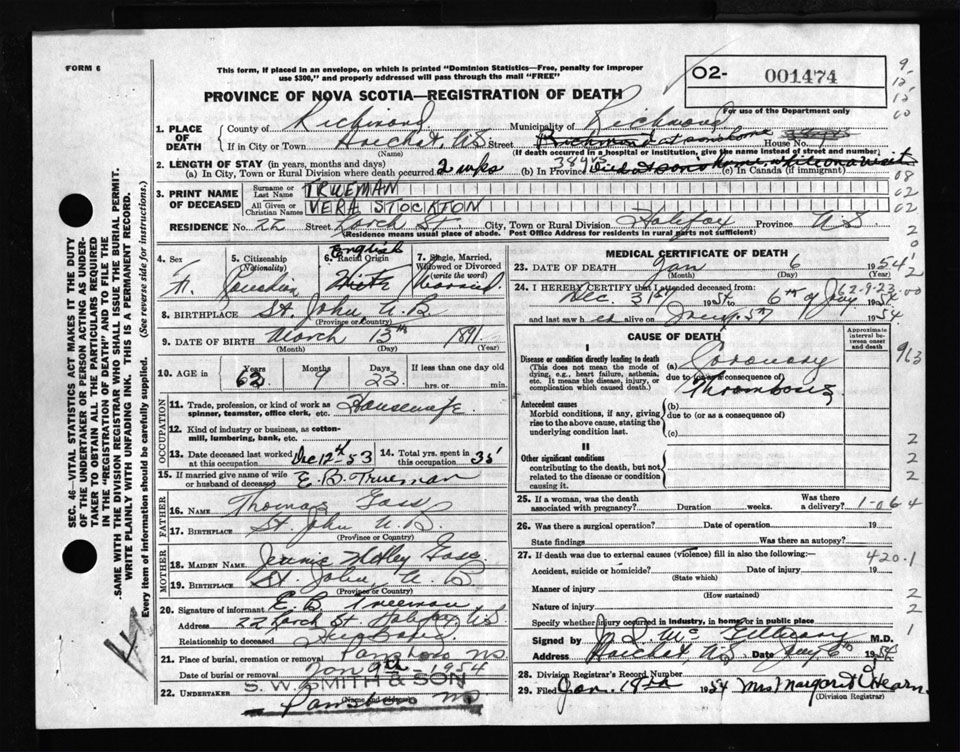 FORM 6
This form, if placed in an envelope, on which is printed "Dominion Statistics—Free, penalty for improper
use $300," and properly addressed will pass through the mail "FREE"
02- 001474
For use of the Department only
PROVINCE OF NOVA SCOTIA—REGISTRATION OF DEATH
1. PLACE OF DEATH
County of Richmond Municipality of Richmond
If in City or Town Street House No.
(Name) (If death occurred in a hospital or institution, give the name instead of street and number)
2. LENGTH OF STAY (in years, months and days)
(a) In City, Town or Rural Division where death occurred 2 wks (b) In Province 38 yrs (c) In Canada (if immigrant)
3. PRINT NAME OF DECEASED
Surname or Last Name TRUEMAN
All Given or Christian Names VERA STOCKTON
RESIDENCE No. 22 Street Larch St City, Town or Rural Division Halifax Province N S
(Residence means usual place of abode. Post Office Address for residents in rural parts not sufficient)
4. Sex F.
5. Citizenship (Nationality) Canadian
6. Racial Origin English White
7. Single, Married, Widowed or Divorced (write the word) Married
8. BIRTHPLACE St. John N B
(Province or Country)
9. DATE OF BIRTH March 13th 1891
(Month) (Day) (Year)
10. AGE in Years 62 Months 9 Days 23 If less than one day old
hrs. or min.
OCCUPATION
11. Trade, profession, or kind of work as spinner, teamster, office clerk, etc. Housewife
12. Kind of industry or business, as cotton-mill, lumbering, bank, etc.
13. Date deceased last worked at this occupation Dec 12th 53
14. Total yrs. spent in this occupation 35
15. If married give name of wife or husband of deceased E. B. Trueman
FATHER
16. Name Thomas Gass
17. Birthplace St. John N. B.
(Province or Country)
MOTHER
18. Maiden Name Jennie Gass
19. Birthplace St. John N B
(Province or Country)
20. Signature of informant E. B. Trueman
Address 22 Larch St Halifax N.S.
Relationship to deceased Husband
21. Place of burial, cremation or removal Parrsboro NS
Date of burial or removal Jan 9th 1954
22. UNDERTAKER S. W. SMITH & SON
(Name and address)
Parrsboro NS
MEDICAL CERTIFICATE OF DEATH
23. DATE OF DEATH Jan 6 1954
(Month) (Day)
24. I HEREBY CERTIFY that I attended deceased from:
Dec. 31st to 6th of Jany 1954
and last saw her alive on Jany 5th 1954
CAUSE OF DEATH
Approximate interval between onset and death
I
Disease or condition directly leading to death
(This does not mean the mode of dying, e.g., heart failure, asthenia, etc. It means the disease, injury, or complication which caused death.)
(a) Coronary
due to (or as a consequence of)
Thrombosis
Antecedent causes
Morbid conditions, if any, giving rise to the above cause, stating the underlying condition last.
(b)
due to (or as a consequence of)
(c)
II
Other significant conditions
contributing to the death, but not related to the disease or condition causing it.
25. If a woman, was the death associated with pregnancy? Duration weeks. Was there a delivery?
26. Was there a surgical operation? Date of operation 19
State findings Was there an autopsy?
27. If death was due to external causes (violence) fill in also the following:—
Accident, suicide or homicide? Date of injury 19
(State which)
Manner of injury
(How sustained)
Nature of injury
Specify whether injury occurred in industry, in home or in public place
Signed by M.D.
Address Arichat, N.S. Date Jany 6th 1954
28. Division Registrar's Record Number
29. Filed Jan. 18th 1954 Mrs Margaret Hearn.
(Division Registrar)
SEC. 46—VITAL STATISTICS ACT MAKES IT THE DUTY
OF THE UNDERTAKER OR PERSON ACTING AS UNDER-
TAKER TO OBTAIN ALL THE PARTICULARS REQUIRED
IN THE "REGISTRATION OF DEATH" AND TO FILE THE
SAME WITH THE DIVISION REGISTRAR WHO SHALL ISSUE THE BURIAL PERMIT.
WRITE PLAINLY WITH UNFADING INK. THIS IS A PERMANENT RECORD.
Every item of information should be carefully supplied. (See reverse side for instructions.)
420.1
1-064